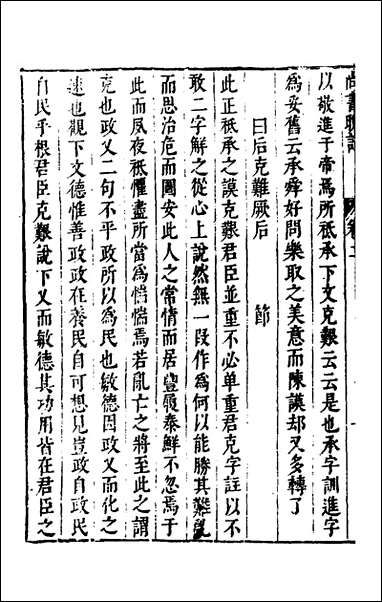 尚書
以敬進于帝焉所祇承下文克艱云云是也承字訓進字
為妥舊云承舜好問樂取之美意而陳謨却又多轉了
曰后克難厥后 節
此正祇承之謨克艱君臣並重不必单重君克字註以不
敢二字解之從心上說然無一段作為何以能勝其難亂
而思治危而圖安此人之常情而居豐履泰鮮不忽焉于
此而夙夜祇懼盡所當為惴惴焉若亂亡之將至此之謂
克也政乂二句不平政所以為民也敏德因政乂而化之
速也觀下文德惟善政政在養民自可想見豈政自政民
自民乎根君臣克艱說下乂而敏德其功用皆在君臣之